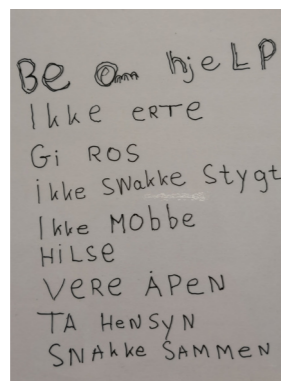 BE om hjeLP
Ikke eRTe
Gi ROS
ikke SNakke Stygt
Ikke MOBBe
HiLSe
VeRe ÅPeN
TA HeNSYN
SNAkke SAMMeN